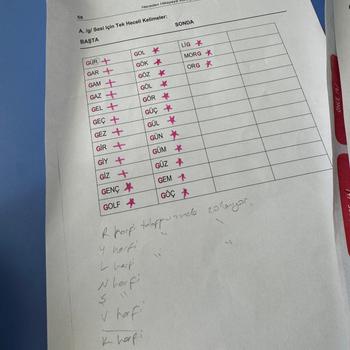 58
A. /g/ Sesi İçin Tek Heceli Kelimeler:
BAŞTA SONDA
GÜR + GOL ★ LİG ★
GAR + GÖK ★ MORG ★
GAM + GÖZ ★ ORG ★
GAZ + GÖL ★
GEL + GÖR ★
GEÇ + GÜÇ ★
GEZ + GÜL ★
GİR + GÜN ★
GİY + GÜM ★
GİZ + GÜZ ★
GENÇ ★ GEM ★
GOLF ★ GÖÇ ★
R harfi
Y harfi " "
L harfi "
N harfi
Ş "
V harfi
K harfi